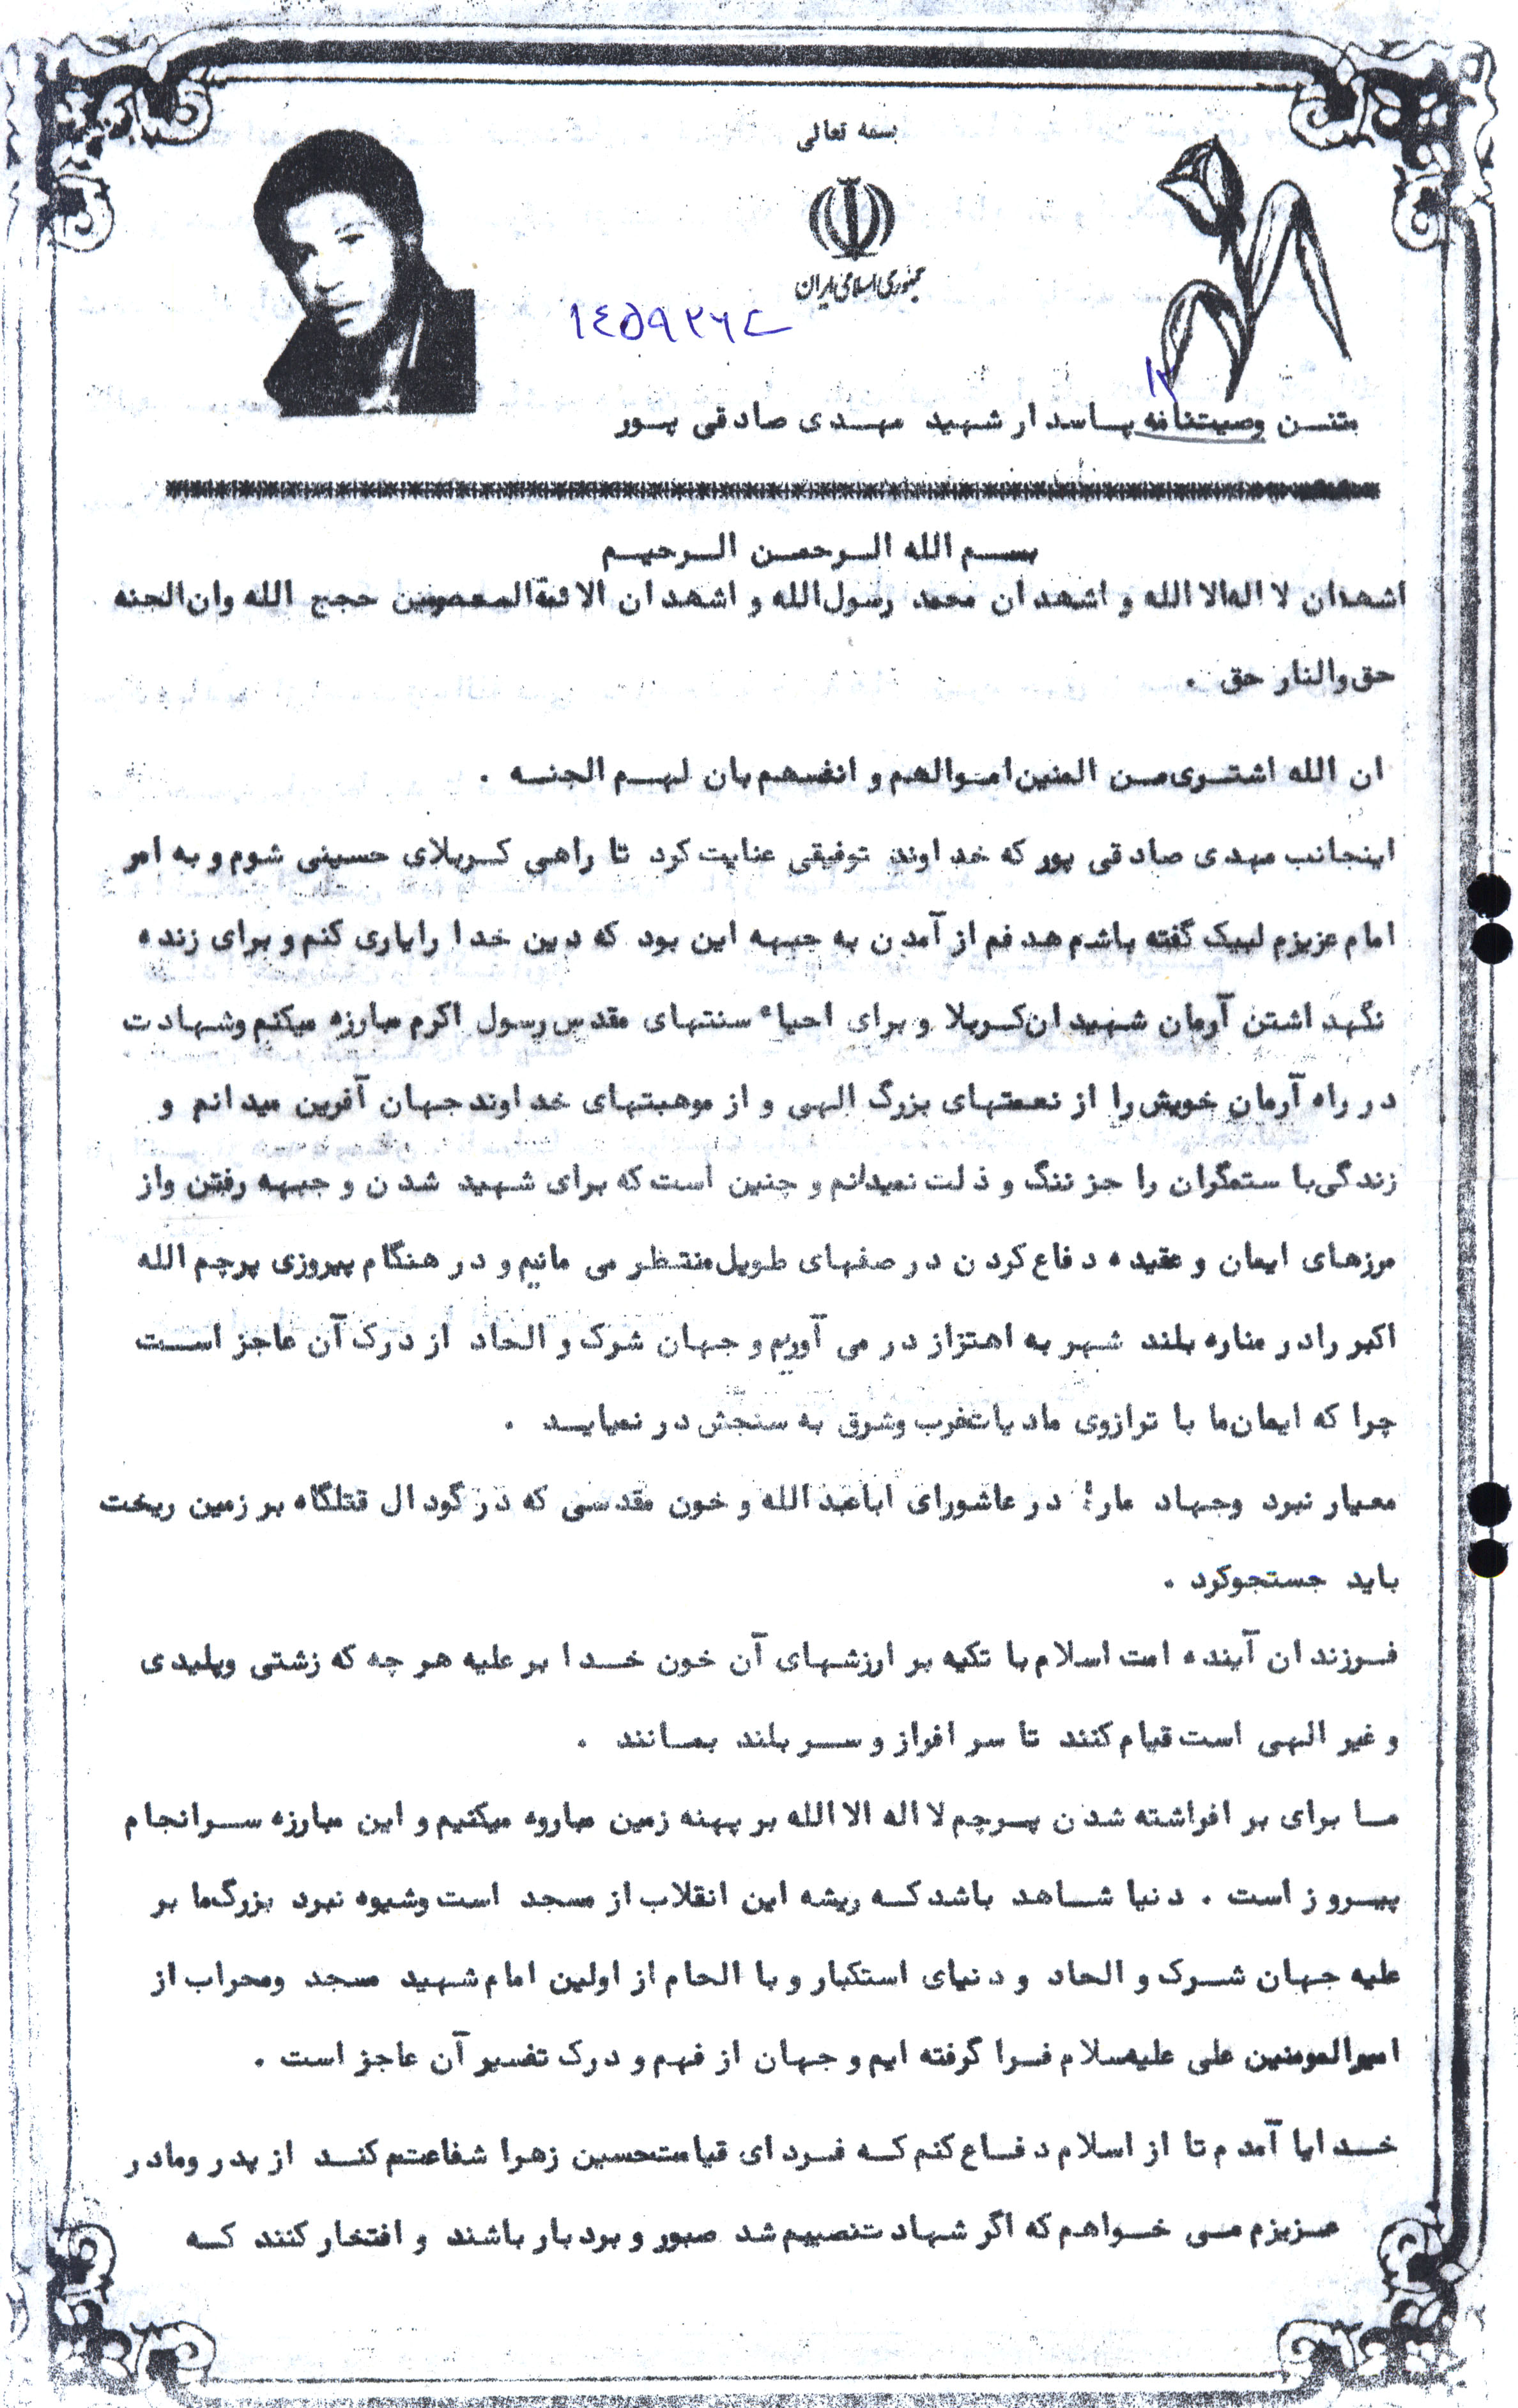 بسمه تعالی
جمهوری اسلامی ایران
١٤٥٩٢٦٤
١٢
متن وصیتنامه پاسدار شهید مهدی صادقی پور
بسم الله الرحمن الرحیم
اشهدان لا اله الا الله و اشهدان محمد رسول الله و اشهدان الائمة المعصومین حجج الله وان الجنه
حق والنار حق .
ان الله اشتری من المنین اموالهم و انفسهم بان لهم الجنه .
اینجانب مهدی صادقی پور که خداوند توفیقی عنایت کرد تا راهی کربلای حسینی شوم و به امر
امام عزیزم لبیک گفته باشم هدفم از آمدن به جبهه این بود که دین خدا را یاری کنم و برای زنده
نگهداشتن آرمان شهیدان کربلا و برای احیاء سنتهای مقدس رسول اکرم مبارزه میکنم وشهادت
در راه آرمان خویش را از نعمتهای بزرگ الهی و از موهبتهای خداوند جهان آفرین میدانم و
زندگی با ستمگران را جز ننگ و ذلت نمیدانم و چنین است که برای شهید شدن و جبهه رفتن واز
مرزهای ایمان و عقیده دفاع کردن در صفهای طویل منتظر می مانیم و در هنگام پیروزی پرچم الله
اکبر رادر مناره بلند شهر به اهتزاز در می آوریم و جهان شرک و الحاد از درک آن عاجز است
چرا که ایمان ما با ترازوی مادیات غرب وشرق به سنجش در نمیاید .
معیار نبرد وجهاد مارا در عاشورای اباعبدالله و خون مقدسی که در گودال قتلگاه بر زمین ریخت
باید جستجوکرد .
فرزندان آینده امت اسلام با تکیه بر ارزشهای آن خون خدا بر علیه هر چه که زشتی وپلیدی
و غیر الهی است قیام کنند تا سر افراز و سر بلند بمانند .
ما برای بر افراشته شدن پرچم لا اله الا الله بر پهنه زمین مباروه میکنیم و این مبارزه سرانجام
پیروز است . دنیا شاهد باشد که ریشه این انقلاب از مسجد است وشیوه نبرد بزرگ ما بر
علیه جهان شرک و الحاد و دنیای استکبار و با الحام از اولین امام شهید مسجد ومحراب از
امیرالمومنین علی علیه سلام فرا گرفته ایم و جهان از فهم و درک تفسیر آن عاجز است .
خدایا آمدم تا از اسلام دفاع کنم که فردای قیامت حسین زهرا شفاعتم کند از پدر ومادر
عزیزم می خواهم که اگر شهادت نصیبم شد صبور و بردبار باشند و افتخار کنند که